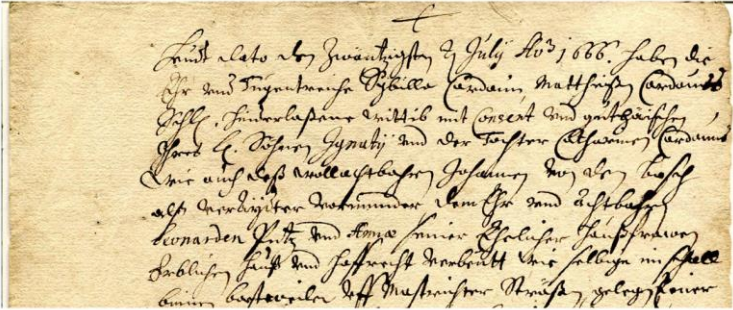 Heudt dato den Zwantzigsten July Ao 1666. haben die
Ehr und Tugentreiche Sybilla Cardauns Matthießen Cardauns
Sehl. hinderlaßene wittib mit Consent und guthäischen
Ihres Sohnen Ignatij und der Tochter Catharinen Cardauns
wie auch deß wollachtbahren Johannen von den Bosch
alß vereyder vormünder dem Ehr und Achtbahren
Leonarden Pütz und Annae seiner Ehelicher haußfrawen
Erblichen und verkaufft wie selbige im
binnen uff Mastrichter Sträßen gelegen